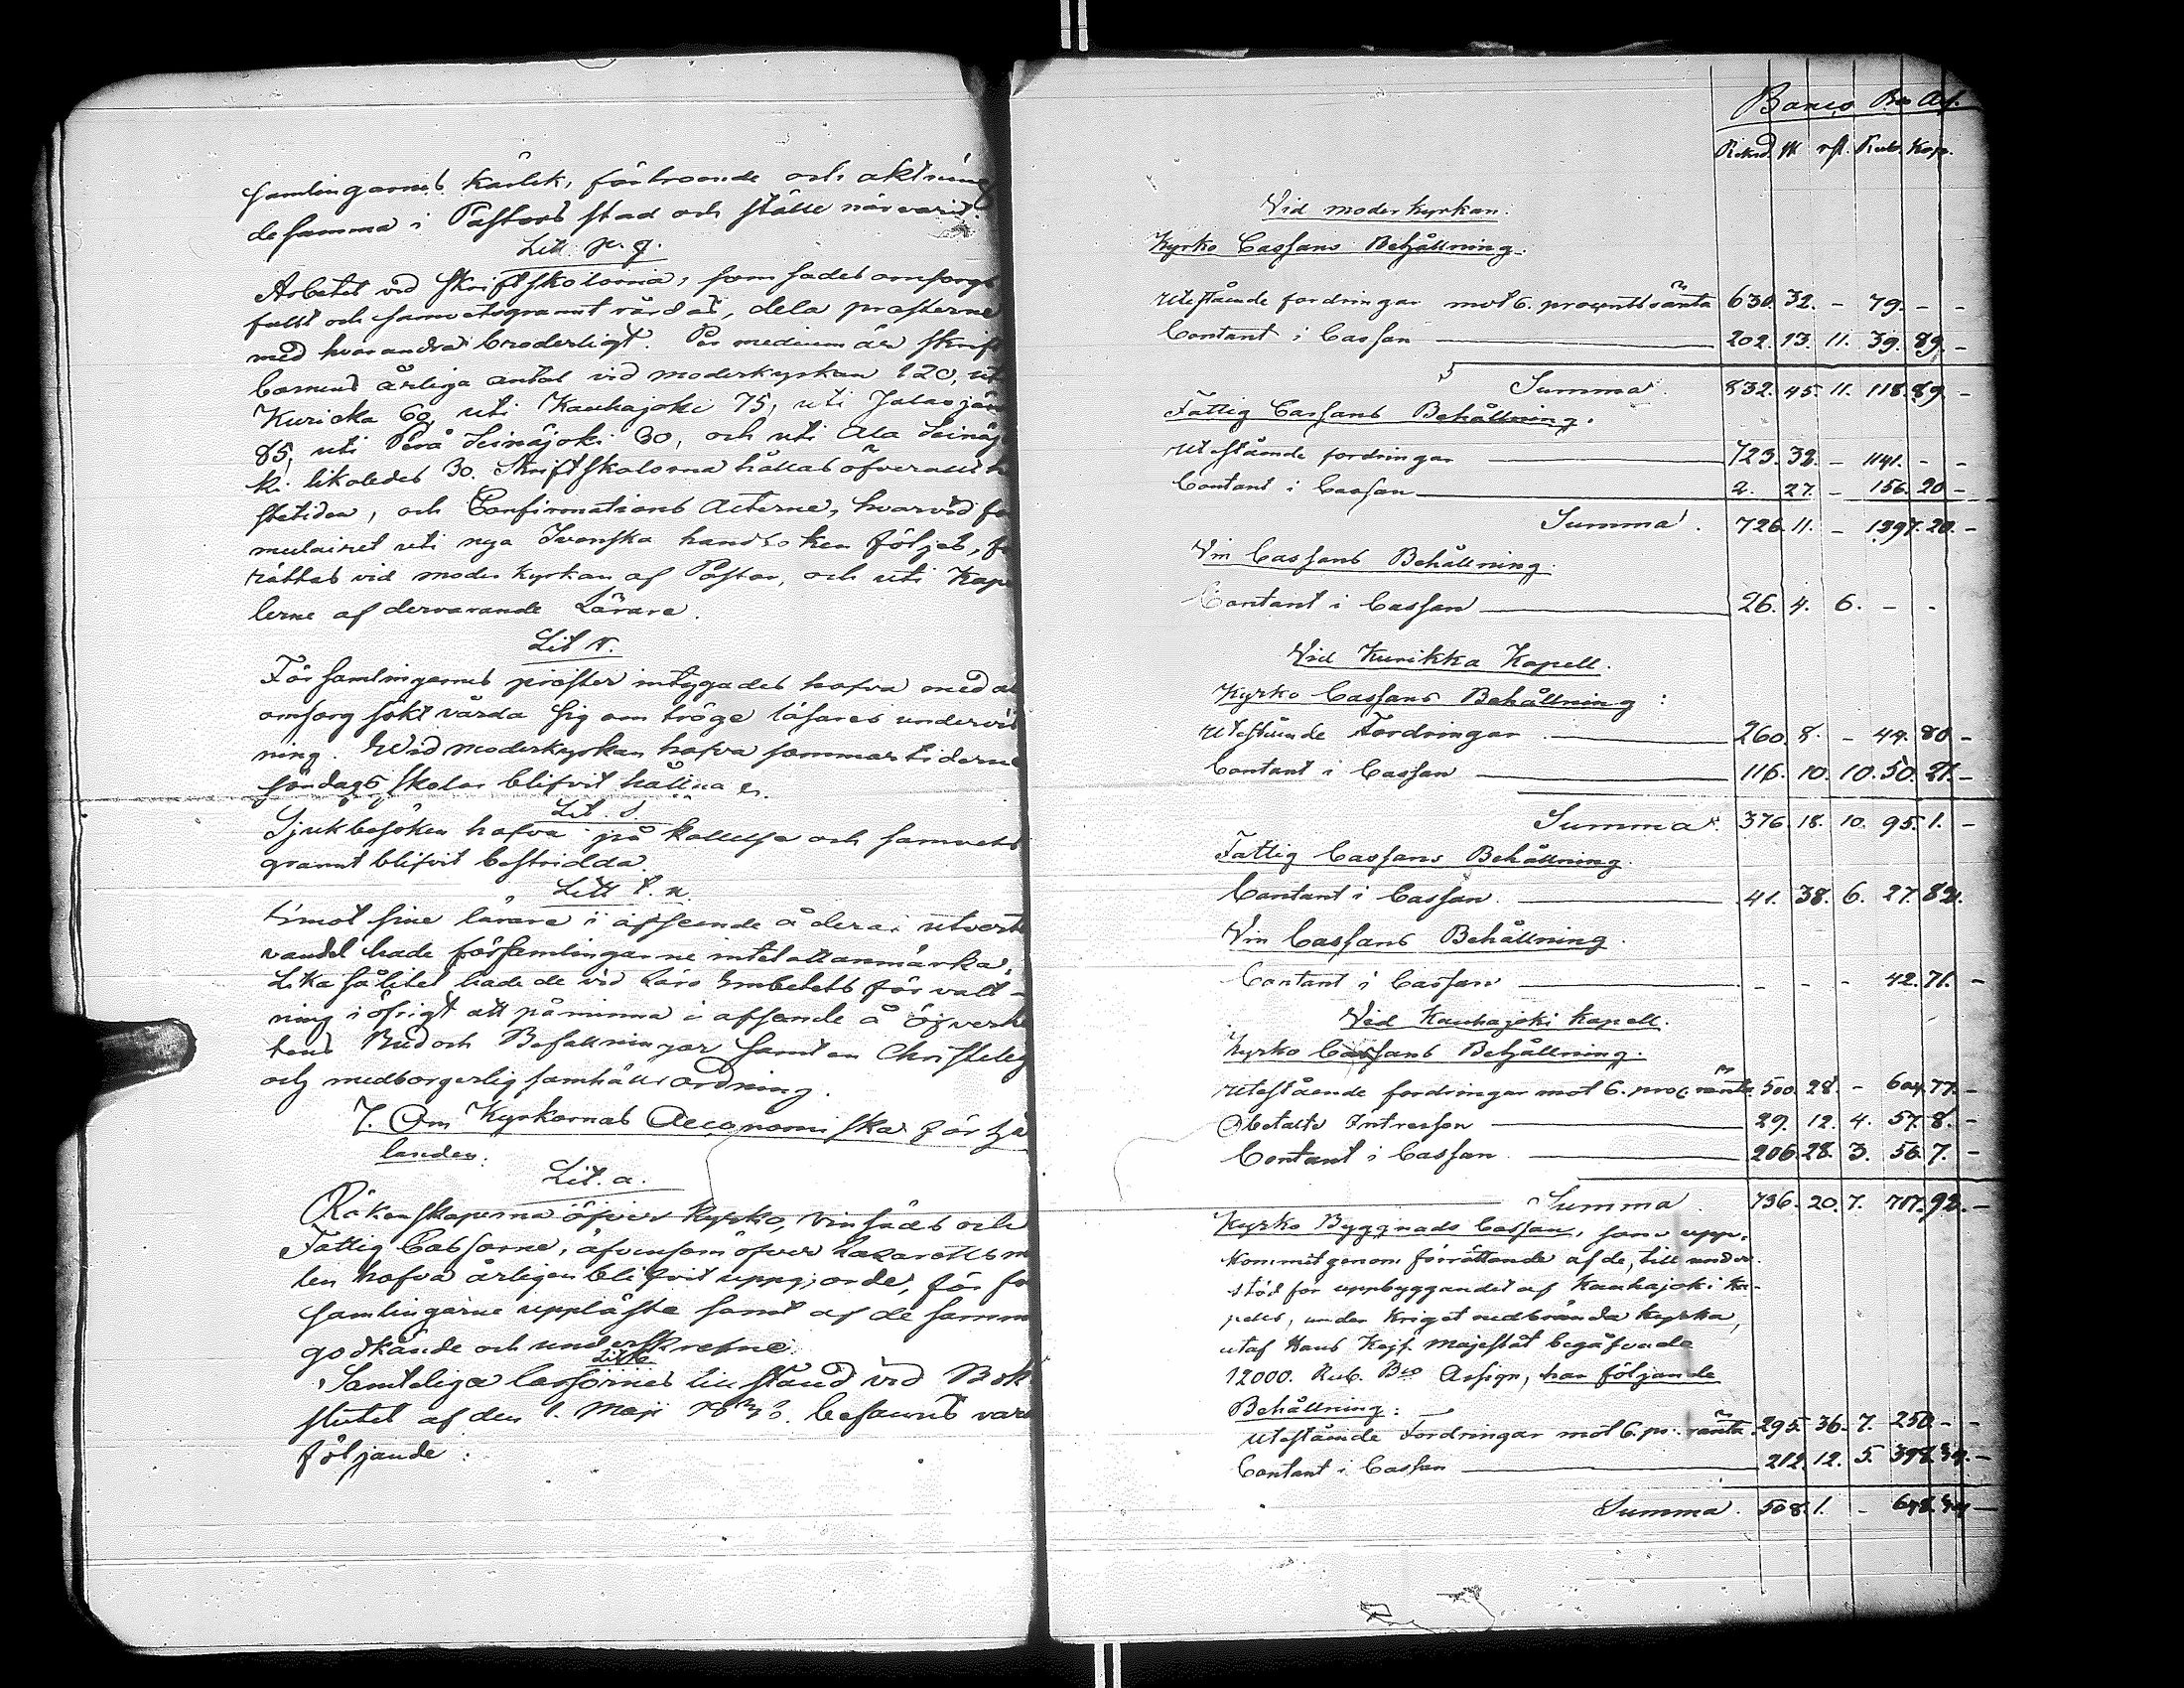 samlingarnes kärlek, förtroende och aktning
desamma i Pastors stad och ställe närvarit.
Litt. p. q.
Arbetet vid Skriftskolorna, som sades omsorgs
fullt och samvetsgrannt vårdas, dela presterne
med hvarandra broderligt. Per medium är Skrift
barnens årliga antal vid moderkyrkan 120, uti
Kuricka 60, uti Kauhajoki 75, uti Jalasjär
85, uti Perä Seinäjoki 30, och uti Ala Seinäj
ki likaledes 30. Skriftskolorna hållas öfverallt
stetiden, och Confirmations Acterne, hvarvid for
mulairet uti nya Svenska handboken följes, för
rättas vid moder kyrkan af Pastor, och uti Kape
lerne af dervarande Lärare.
Lit r.
Församlingarnes prester intygades hafva med al
omsorg sökt vårda sig om tröge läsares undervis
ning. Wid moderkyrkan hafva sommartiderne
söndags skolor blifvit hållna.
Lit. s.
Sjukbesöken hafva på kallelse och samvets
grannt blifvit bestridda.
Litt t. u.
Emot sine lärare i afseende å deras utvertes
vandel hade församlingarne intet att anmärka,
Lika så litet hade de vid Läro Embetets förvalt-
ning i öfrigt att påminna i afseende å öfverhe
tens Bud och Befallningar samt en Christelig
och medborgerlig samhälls ordning.
7. Om Kyrkornas Oeconomiska förhål
landen.
Lit. a.
Räkenskaperna öfver kyrko, vinsäds och
Fattig Cassorne, äfvensom öfver Lazaretts m
len hafva årligen blifvit uppgjorde, för för
samlingarne uppläste samt af desamm
godkände och underskrefne.
Samtelige Cassornes tillstånd vid Bok
slutet af den 1. Maji befanns vara
följande:
Banco Bco As.
Riksd. sk rst. Rub. Kop.
Vid moderkyrkan.
Kyrko Cassans Behållning.
Utestående fordringar mot 6. procents ränta 630. 32. - 79. - -
Contant i Cassan 202. 13. 11. 39. 89. -
Summa 832. 45. 11. 118. 89 -
Fattig Cassans Behållning.
Utestående fordringar 723. 32. - 1141. - -
Contant i Cassan 2. 27. - 156. 20 -
Summa. 726. 11. - 1297. 20. -
Vin Cassans Behållning.
Contant i Cassan 26. 4. 6. - -
Vid Kurikka Kapell.
Kyrko Cassans Behållning:
Utestående Fordringar 260. 8. - 44. 80 -
Contant i Cassan 116. 10. 10. 50. 21. -
Summa. 376. 18. 10. 95. 1. -
Fattig Cassans Behållning.
Contant i Cassan. 41. 38. 6. 27. 82.
Vin Cassans Behållning.
Contant i Cassan - - - 42. 71. -
Vid Kauhajoki Kapell.
Kyrko Cassans Behållning.
Utestående fordringar mot 6. proc. ränta. 500. 28. - 604. 77. -
Obetalte Intressen 29. 12. 4. 57. 8. -
Contant i Cassan. 206. 28. 3. 56. 7. -
Summa. 736. 20. 7. 717. 92. -
Kyrko Byggnads Cassan, som upp-
kommit genom förrättande af de, till under
stöd för uppbyggandet af Kauhajoki ka-
pells, under kriget nedbrända kyrka,
utaf Hans Kejs. Majestät begåfvade
12000. Rub. Bco Assign, har följande
Behållning:
Utestående Fordringar mot 6. pr. ränta. 295. 36. 7. 250 - -
Contant i Cassan 212. 12. 5. 398. 34. -
Summa. 508. 1. - 648. 34 -